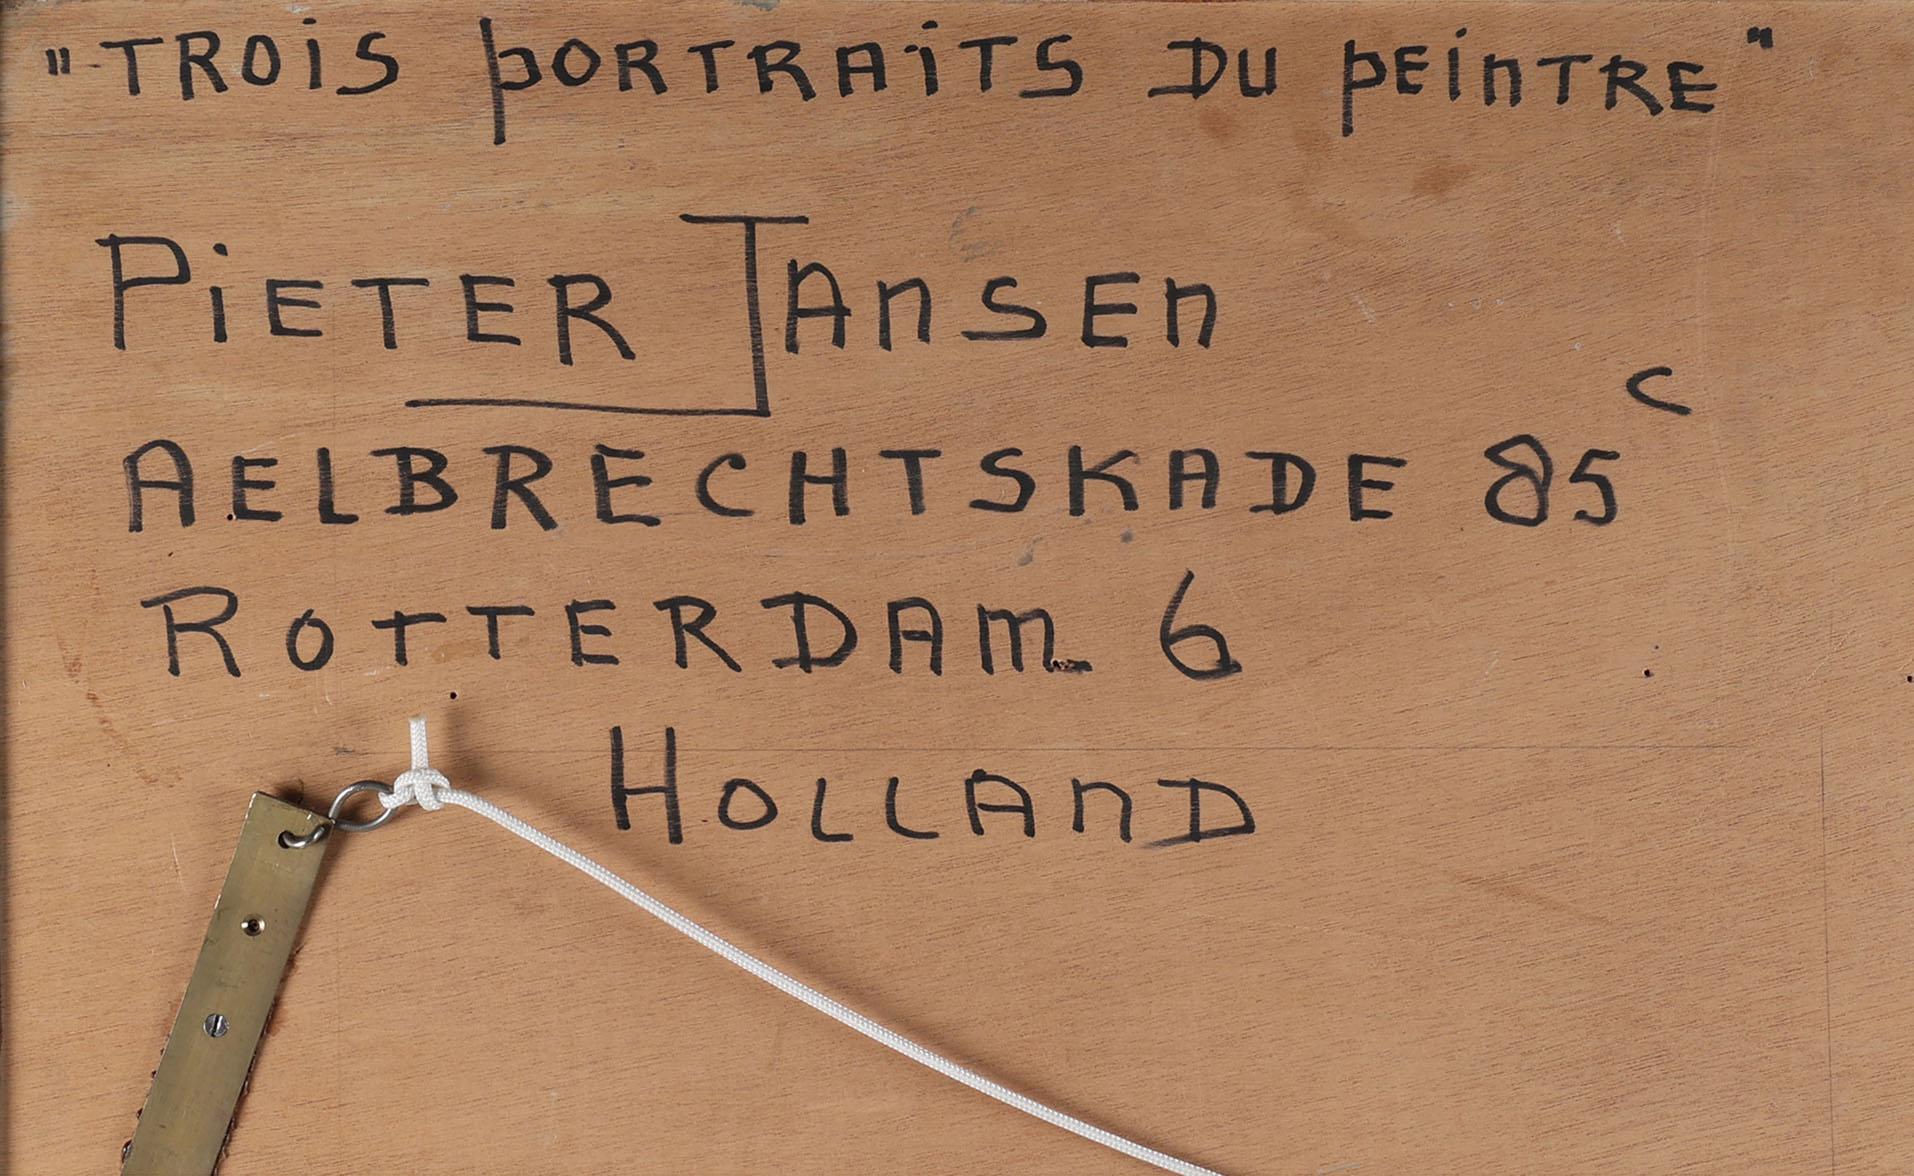 "TROiS pORTRAiTS DU pEinTRE"
PiETER JAnSEn
AELBRECHTSKADE 85 c
ROTTERDAm 6
HOLLAnD